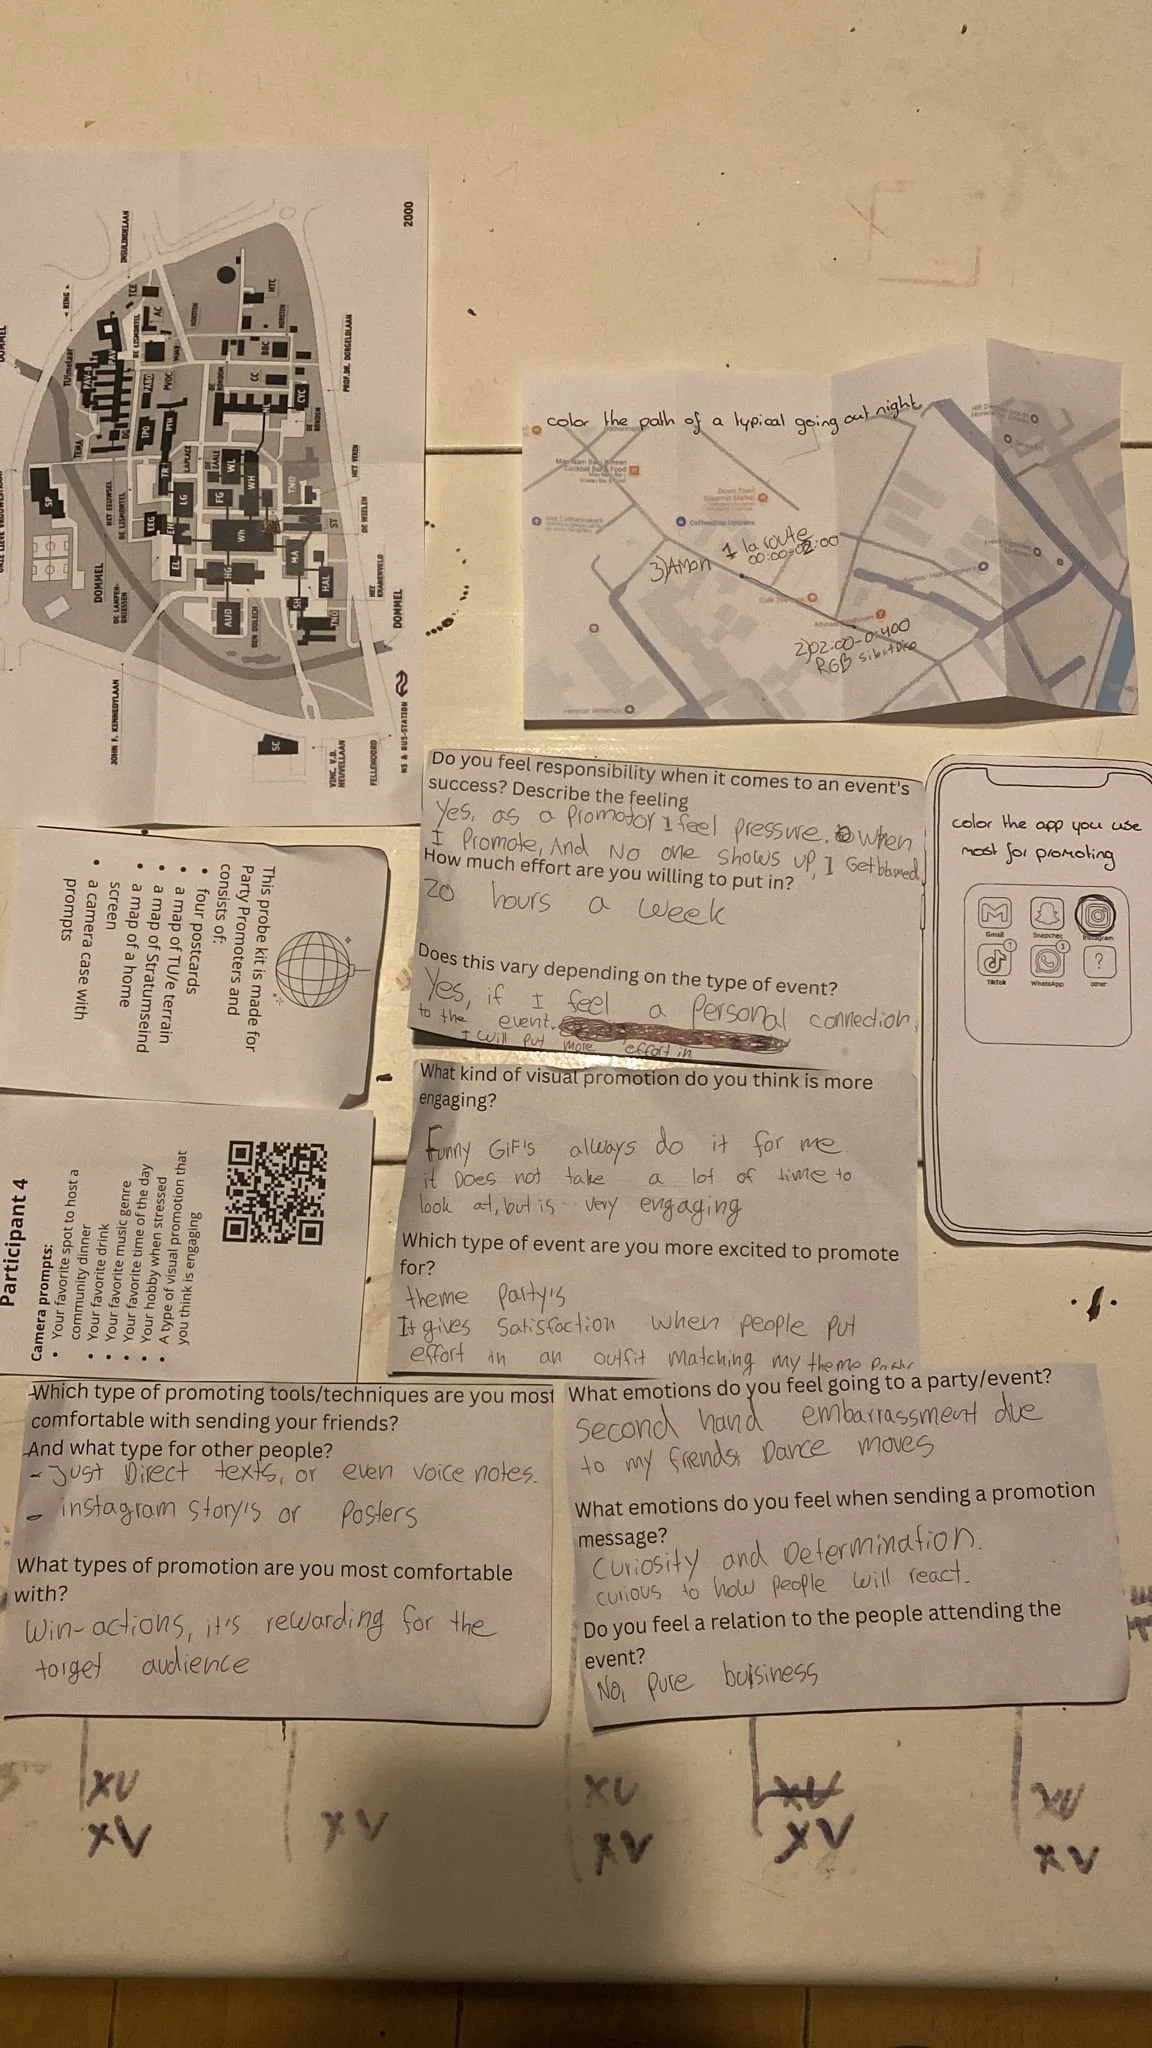 2000
INSULINDELAAN
« RING »
DOMMEL
TUimelaar
TCE
DE LISMORTEL
AC
HTC
HORSTEN
PAV
MAV
PVOC
BBC
CC
DE RONDOM
CYC
PROF. DR. DORGELOLAAN
TEMA
IPO
PTH
TR
LAPLACE
DE ZAALE
WL
WH
TNO
HET VEKEN
SP
HET EEUWSEL
DE LISMORTEL
EEG
LG
FG
Wh
ST
DE WIELEN
EL
MA
DOMMEL
DE LAMPENDRIESSEN
HG
HAL
HET KRANENVELD
AUD
DEN DOLECH
SH
DOMMEL
JOHN F. KENNEDYLAAN
NS & BUS-STATION
SC
VINC. V.D. HEUVELLAAN
FELLENOORD
color the path of a typical going out night
Man Nam Bar | Korean
Cocktail Bar & Food
Down Town
Gourmet Market
Coffeeshop Upstairs
1 la route
00:00-02:00
3) Aman
2) 02:00-0:400
RGB sibutdico
Do you feel responsibility when it comes to an event's
success? Describe the feeling
Yes, as a promotor I feel pressure. When
I Promote, And No one shows up, I Get blamed
How much effort are you willing to put in?
20 hours a week
Does this vary depending on the type of event?
Yes, if I feel a Personal connection,
to the event.
I will put more effort in
color the app you use
most for promoting
Gmail
Snapchat
Instagram
1
3
?
TikTok
WhatsApp
other
This probe kit is made for
Party Promoters and
consists of:
• four postcards
• a map of TU/e terrain
• a map of Stratumseind
• a map of a home
screen
• a camera case with
prompts
What kind of visual promotion do you think is more
engaging?
Funny GIF's always do it for me
it Does not take a lot of time to
look at, but is very engaging
Which type of event are you more excited to promote
for?
theme Party's
It gives satisfaction when people put
effort in an outfit matching my theme
Participant 4
Camera prompts:
• Your favorite spot to host a
community dinner
• Your favorite drink
• Your favorite music genre
• Your favorite time of the day
• Your hobby when stressed
• A type of visual promotion that
you think is engaging
Which type of promoting tools/techniques are you most
comfortable with sending your friends?
And what type for other people?
- Just Direct texts, or even voice notes.
- instagram story's or Posters
What types of promotion are you most comfortable
with?
Win-actions, it's rewarding for the
target audience
What emotions do you feel going to a party/event?
second hand embarrassment due
to my friends Dance moves
What emotions do you feel when sending a promotion
message?
Curiosity and Determination.
curious to how people will react.
Do you feel a relation to the people attending the
event?
No, pure buisiness
XU
XV
XV
XU
XV
XU
XV
XU
XV